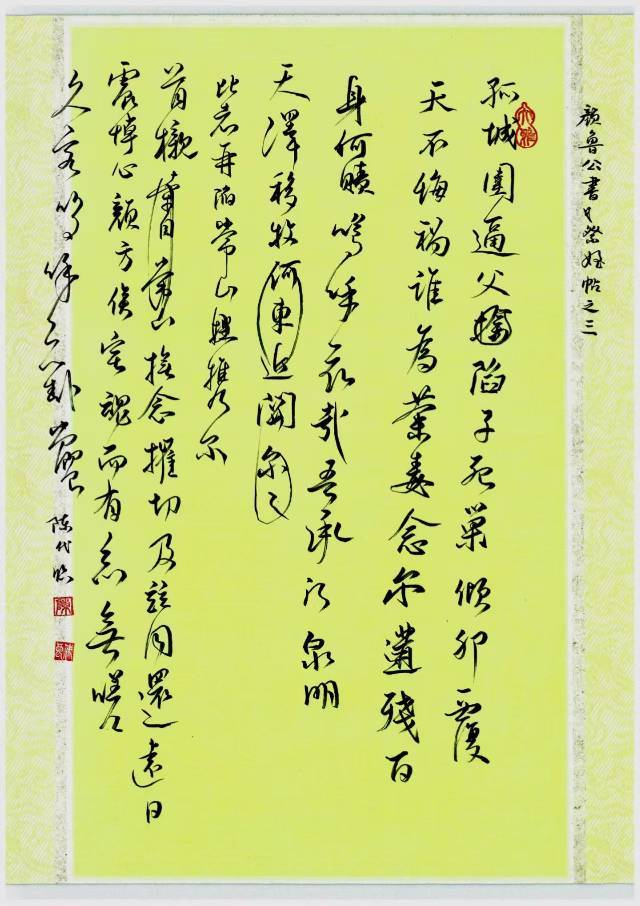 顏魯公書祭姪帖之三
孤城圍逼父陷子死巢傾卵覆
天不悔禍誰為荼毒念尔遘殘百
身何贖嗚呼哀哉吾承泉明
天澤移牧河東近關尔之
比者再陷常山攜尔
首櫬常山撫念摧切及茲同還遠日
震悼心顏方俟宅魂而有知無嗟
久客嗚呼哀哉尚饗
陳代